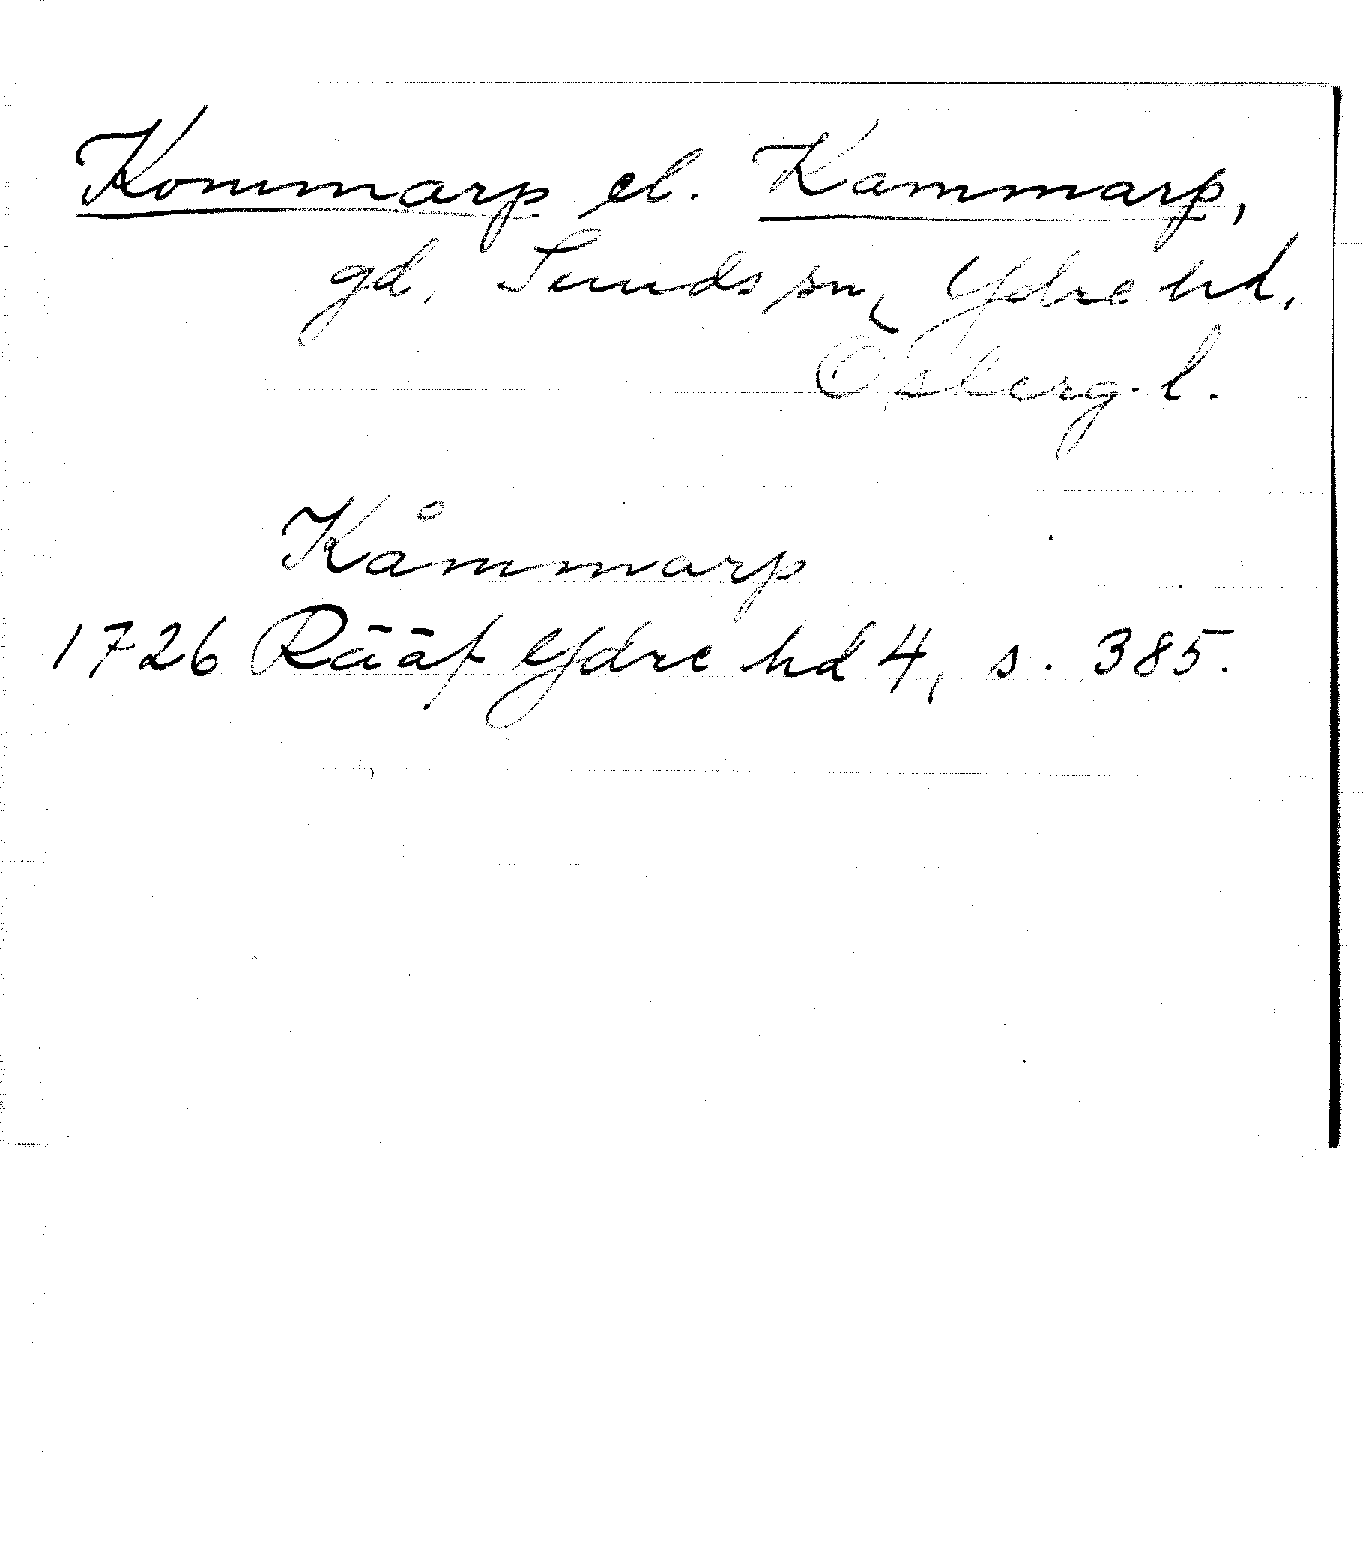 Kommarp el. Kammarp,
gd, Sunds sn, Ydre hd,
Österg. l.
Kåmmarp
1726 Rääf Ydre hd 4, s. 385.